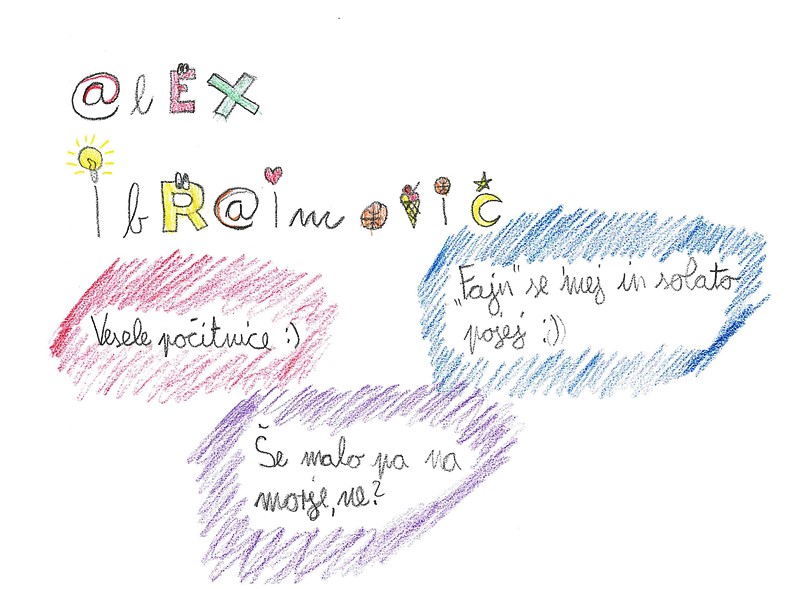 @lEX
ibR@imović
Vesele počitnice :)
„Fajn" se 'mej in solato
pojej :))
Še malo pa na
morje, ne?